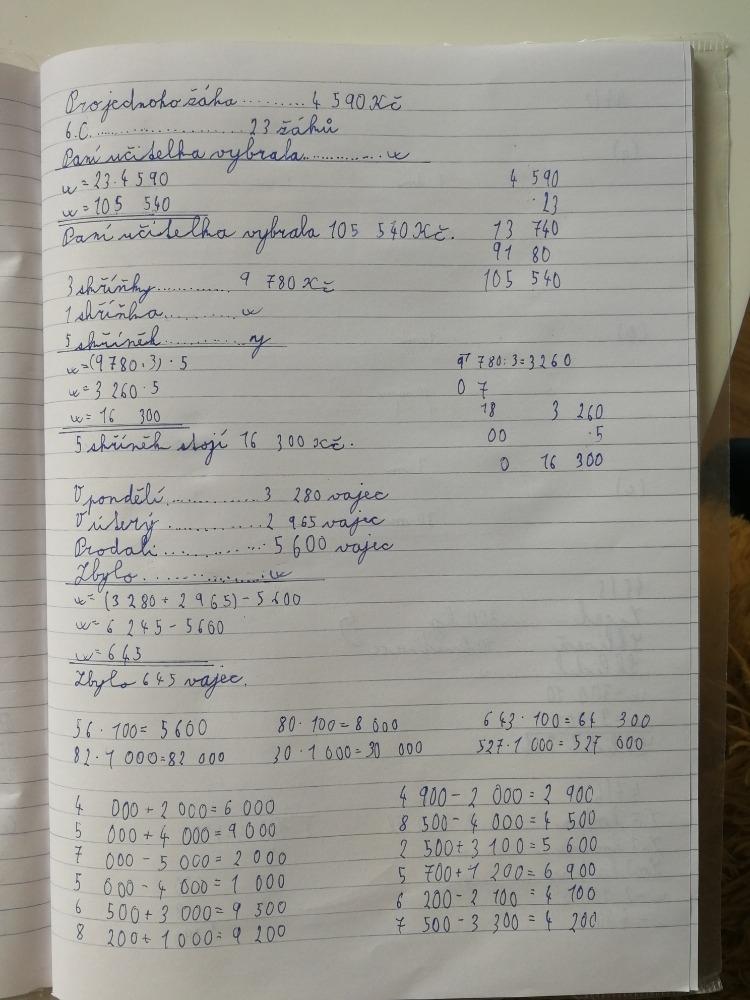 Pro jednoho žáka ......... 4 590 Kč
6.C. ...................... 23 žáků
Paní učitelka vybrala ............ x
x = 23 · 4 590
x = 105 540
Paní učitelka vybrala 105 540 Kč.
4 590
· 23
13 740
91 80
105 540
3 skříňky ............ 9 780 Kč
1 skříňka ............ x
5 skříněk ............ y
x = (9 780 : 3) · 5
x = 3 260 · 5
x = 16 300
5 skříněk stojí 16 300 Kč.
9 780 : 3 = 3260
0 7
18
00
0
3 260
· 5
16 300
V pondělí ............... 3 280 vajec
V úterý ............... 2 965 vajec
Prodali ............... 5 600 vajec
Zbylo .................. x
x = (3 280 + 2 965) - 5 600
x = 6 245 - 5600
x = 645
Zbylo 645 vajec.
56 · 100 = 5600 80 · 100 = 8 000 643 · 100 = 64 300
82 · 1 000 = 82 000 30 · 1 000 = 30 000 527 · 1 000 = 527 000
4 000 + 2 000 = 6 000 4 900 - 2 000 = 2 900
5 000 + 4 000 = 9 000 8 500 - 4 000 = 4 500
7 000 - 5 000 = 2 000 2 500 + 3 100 = 5 600
5 000 - 4 000 = 1 000 5 700 + 1 200 = 6 900
6 500 + 3 000 = 9 500 6 200 - 2 100 = 4 100
8 200 + 1 000 = 9 200 7 500 - 3 300 = 4 200